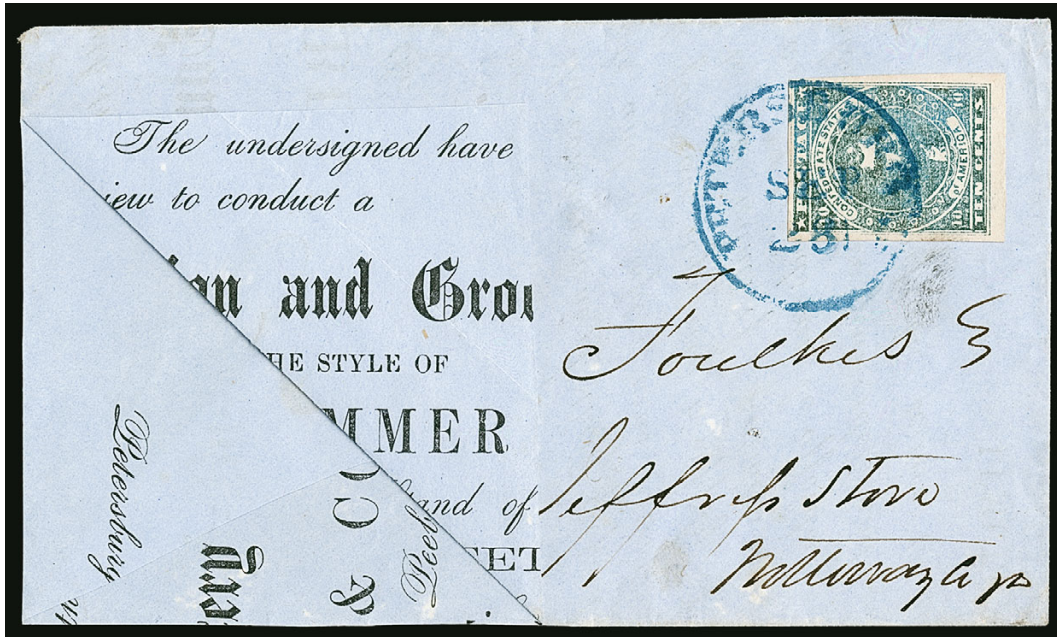 The undersigned have
iew to conduct a
ion and Grou
HE STYLE OF
MMER
and of
EET
Petersburg
& CO
Peel
PETERSBURG
SEP
23
POSTAGE
CONFEDERATE STATES
OF AMERICA
TEN CENTS
10
10
10
Foulkes &
Jeffress Store